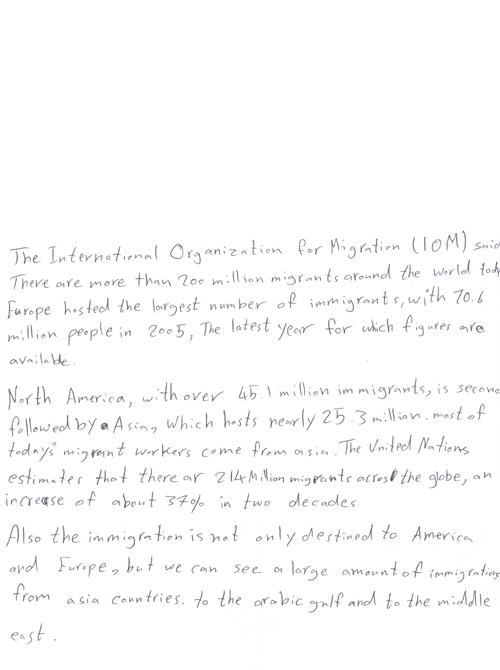 The International Organization for Migration (IOM) said
There are more than 200 million migrants around the world tody
Europe hosted the largest number of immigrants, with 70.6
million people in 2005, The latest year for which figures are
available.
North America, with over 45.1 million immigrants, is second
followed by Asia, which hosts nearly 25.3 million. most of
todays' migrant workers come from asia. The United Nations
estimates that there ar 214 Million migrants across the globe, an
increase of about 37% in two decades
Also the immigration is not only destined to America
and Europe, but we can see a large amount of immigrations
from asia countries. to the arabic gulf and to the middle
east.